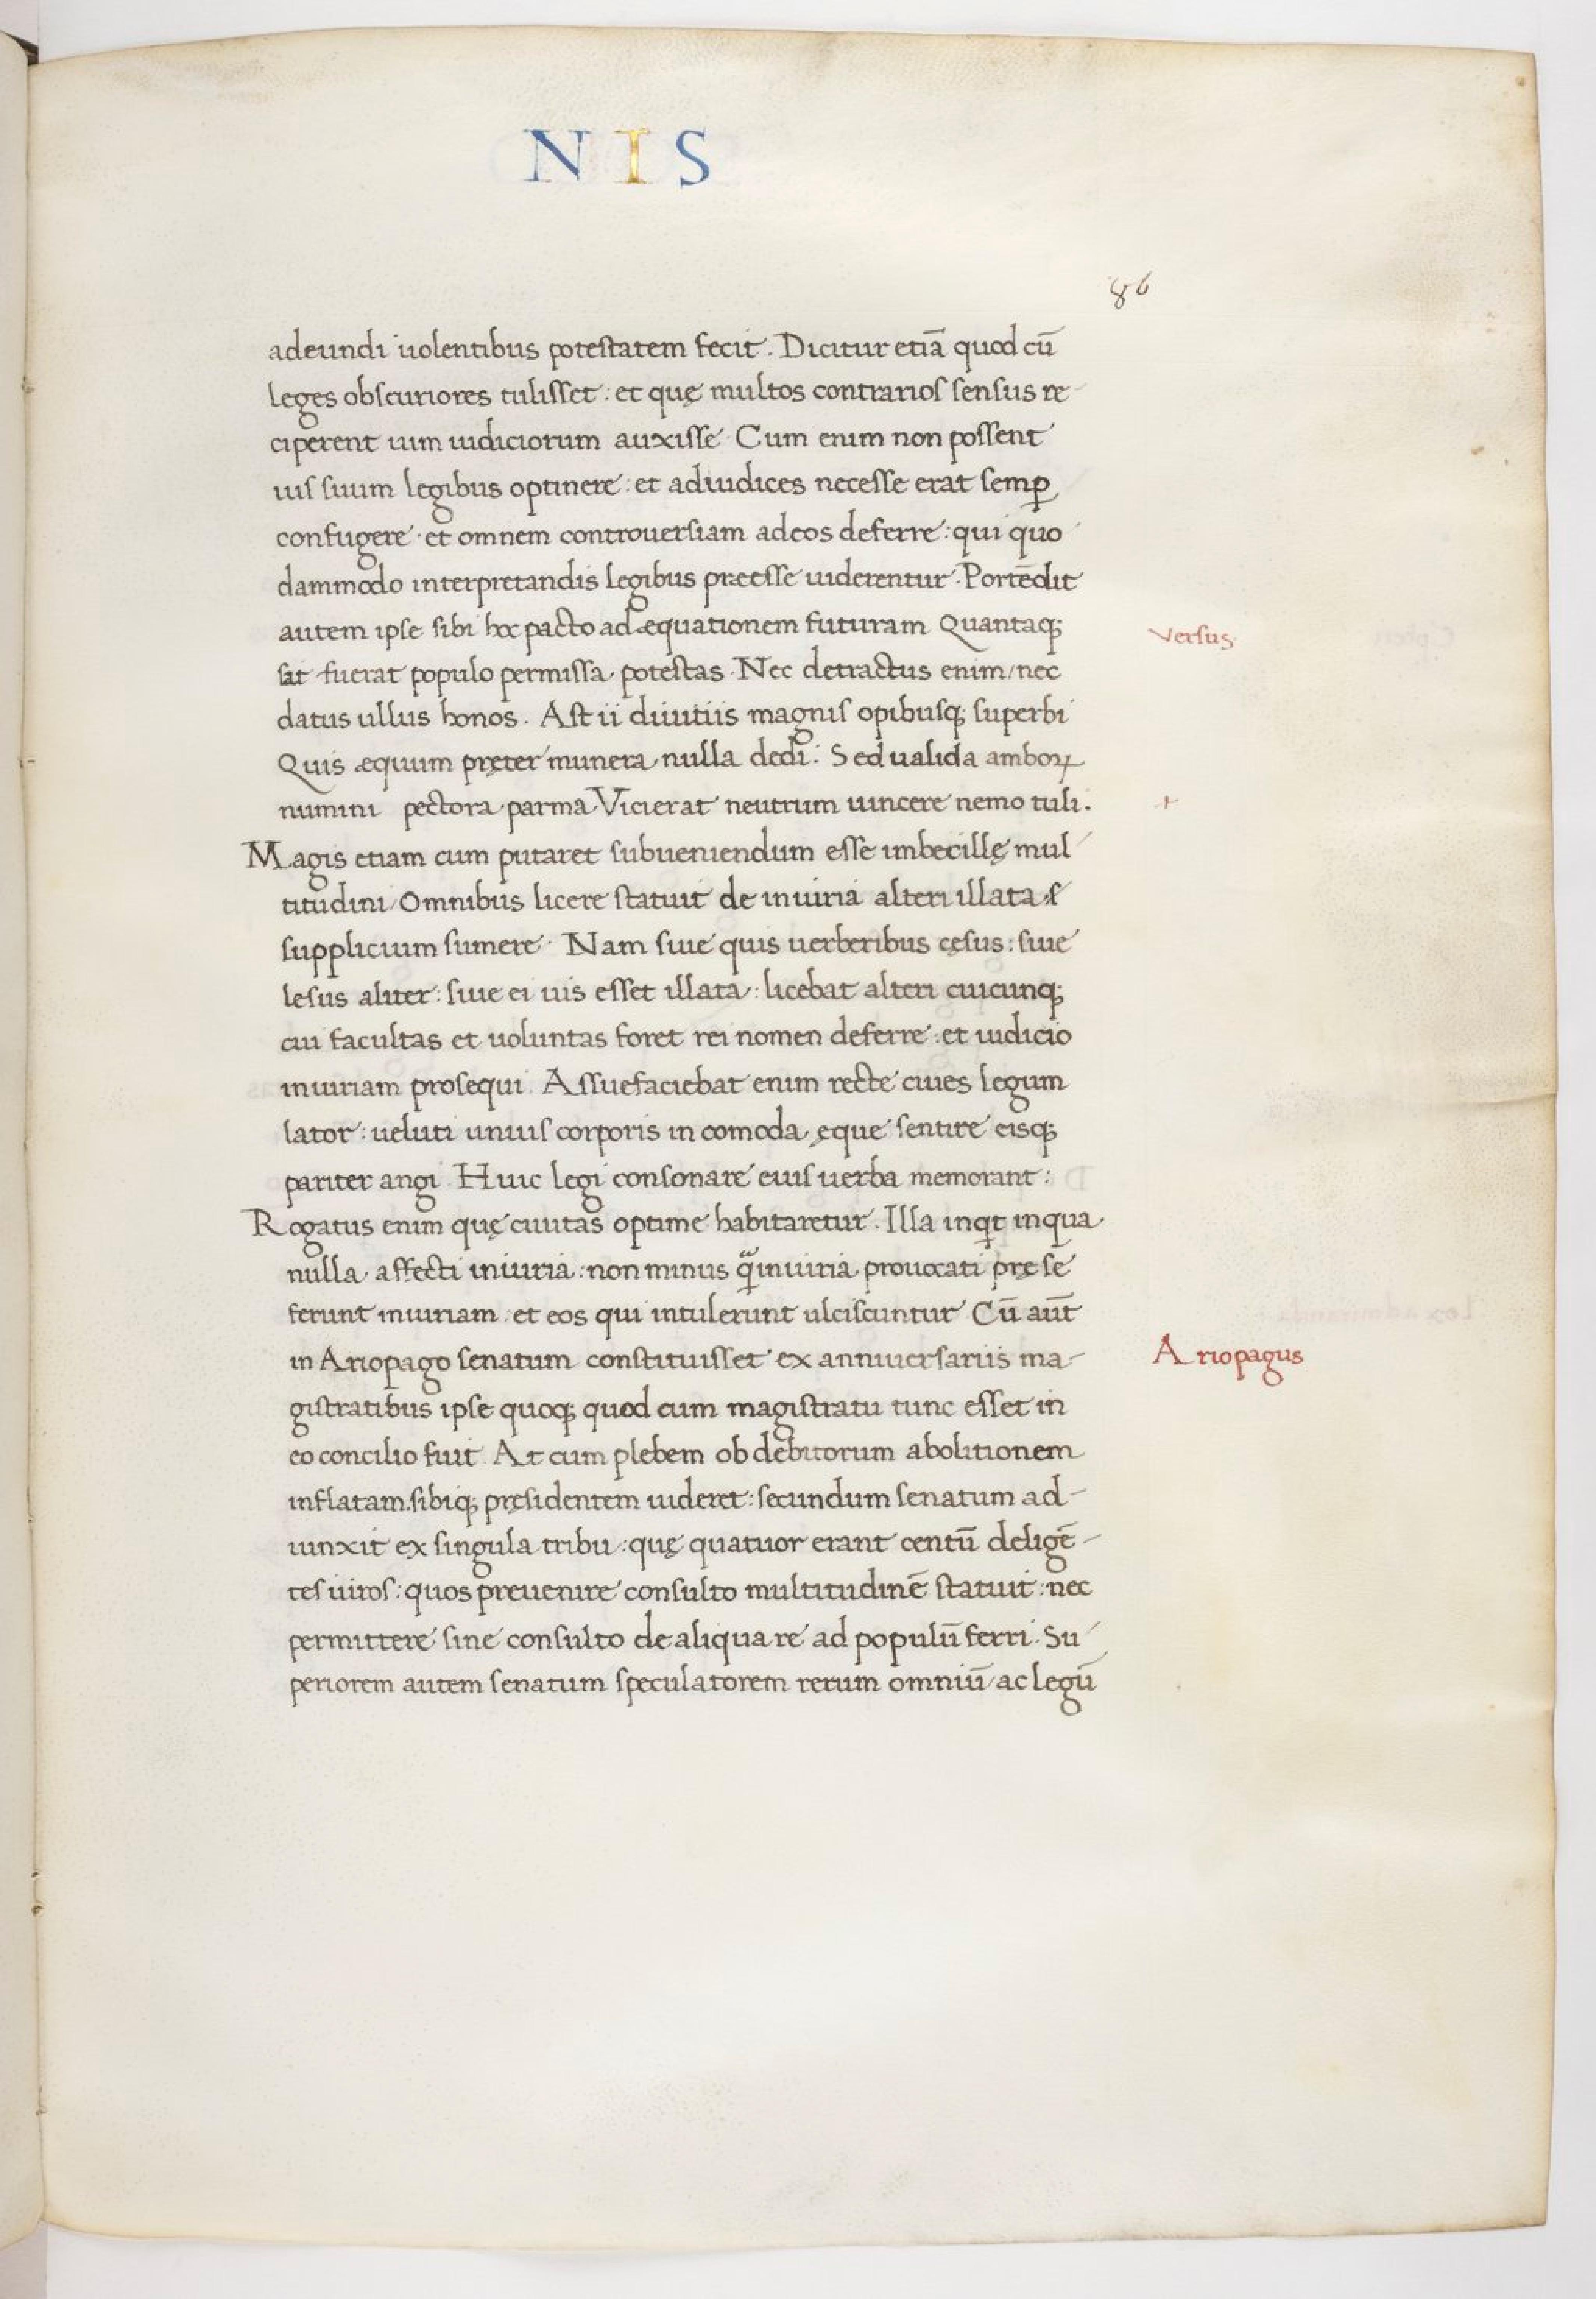 NIS
86
adeundi uolentibus potestatem fecit. Dicitur etiā quod cū
leges obscuriores tulisset: et quę multos contrarios sensus re-
ciperent uim iudiciorum auxisse. Cum enim non possent
ius suum legibus optinere: et ad iudices necesse erat semꝑ
confugere. et omnem controuersiam ad eos deferre: qui quo
dammodo interpretandis legibus præesse uiderentur. Portēdit
autem ipse sibi hoc pacto adæquationem futuram Quantaqꝫ
Versus
sat fuerat populo permissa potestas. Nec detractus enim/nec
datus ullus honos. Ast ii diuitiis magnis opibusqꝫ superbi
Quis æquum pręter munera nulla dedi: Sed ualida amboꝝ
numini pectora parma Vicierat neutrum uincere nemo tuli.
Magis etiam cum putaret subueniendum esse imbecillę mul-
titudini/Omnibus licere statuit de iniuria alteri illata
supplicium sumere. Nam siue quis uerberibus cęsus: siue
lesus aliter: siue ei uis esset illata: licebat alteri cuicunqꝫ
cui facultas et uoluntas foret rei nomen deferre: et iudicio
iniuriam prosequi. Assuefaciebat enim recte ciues legum
lator: ueluti unius corporis incomoda ęque sentire eisqꝫ
pariter angi. Huic legi consonare eius uerba memorant:
Rogatus enim quę ciuitas optime habitaretur. Illa inqͥt in qua
nulla affecti iniuria: non minus qᷓ iniuria prouocati prę se
ferunt iniuriam: et eos qui intulerunt ulciscuntur. Cū aūt
in Ariopago senatum constituisset ex anniuersariis ma-
Ariopagus
gistratibus ipse quoqꝫ quod cum magistratu tunc esset in
eo concilio fuit. At cum plebem ob debitorum abolitionem
inflatam. sibiqꝫ pręsidentem uideret: secundum senatum ad-
iunxit ex singula tribu: quę quatuor erant centū deligē-
tes uiros: quos preuenire consulto multitudinē statuit: nec
permittere sine consulto de aliqua re ad populū ferri. Su-
periorem autem senatum speculatorem rerum omniū/ac legū